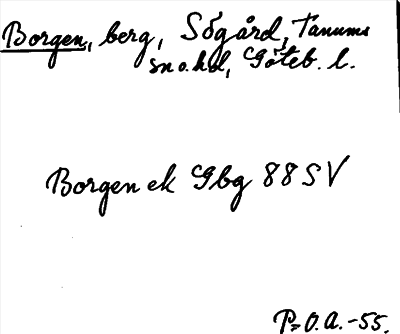 Borgen, berg, Sögård, Tanums
sn o. hd, Göteb. l.
Borgen ek Gbg 88 SV
P-O.A. -55.